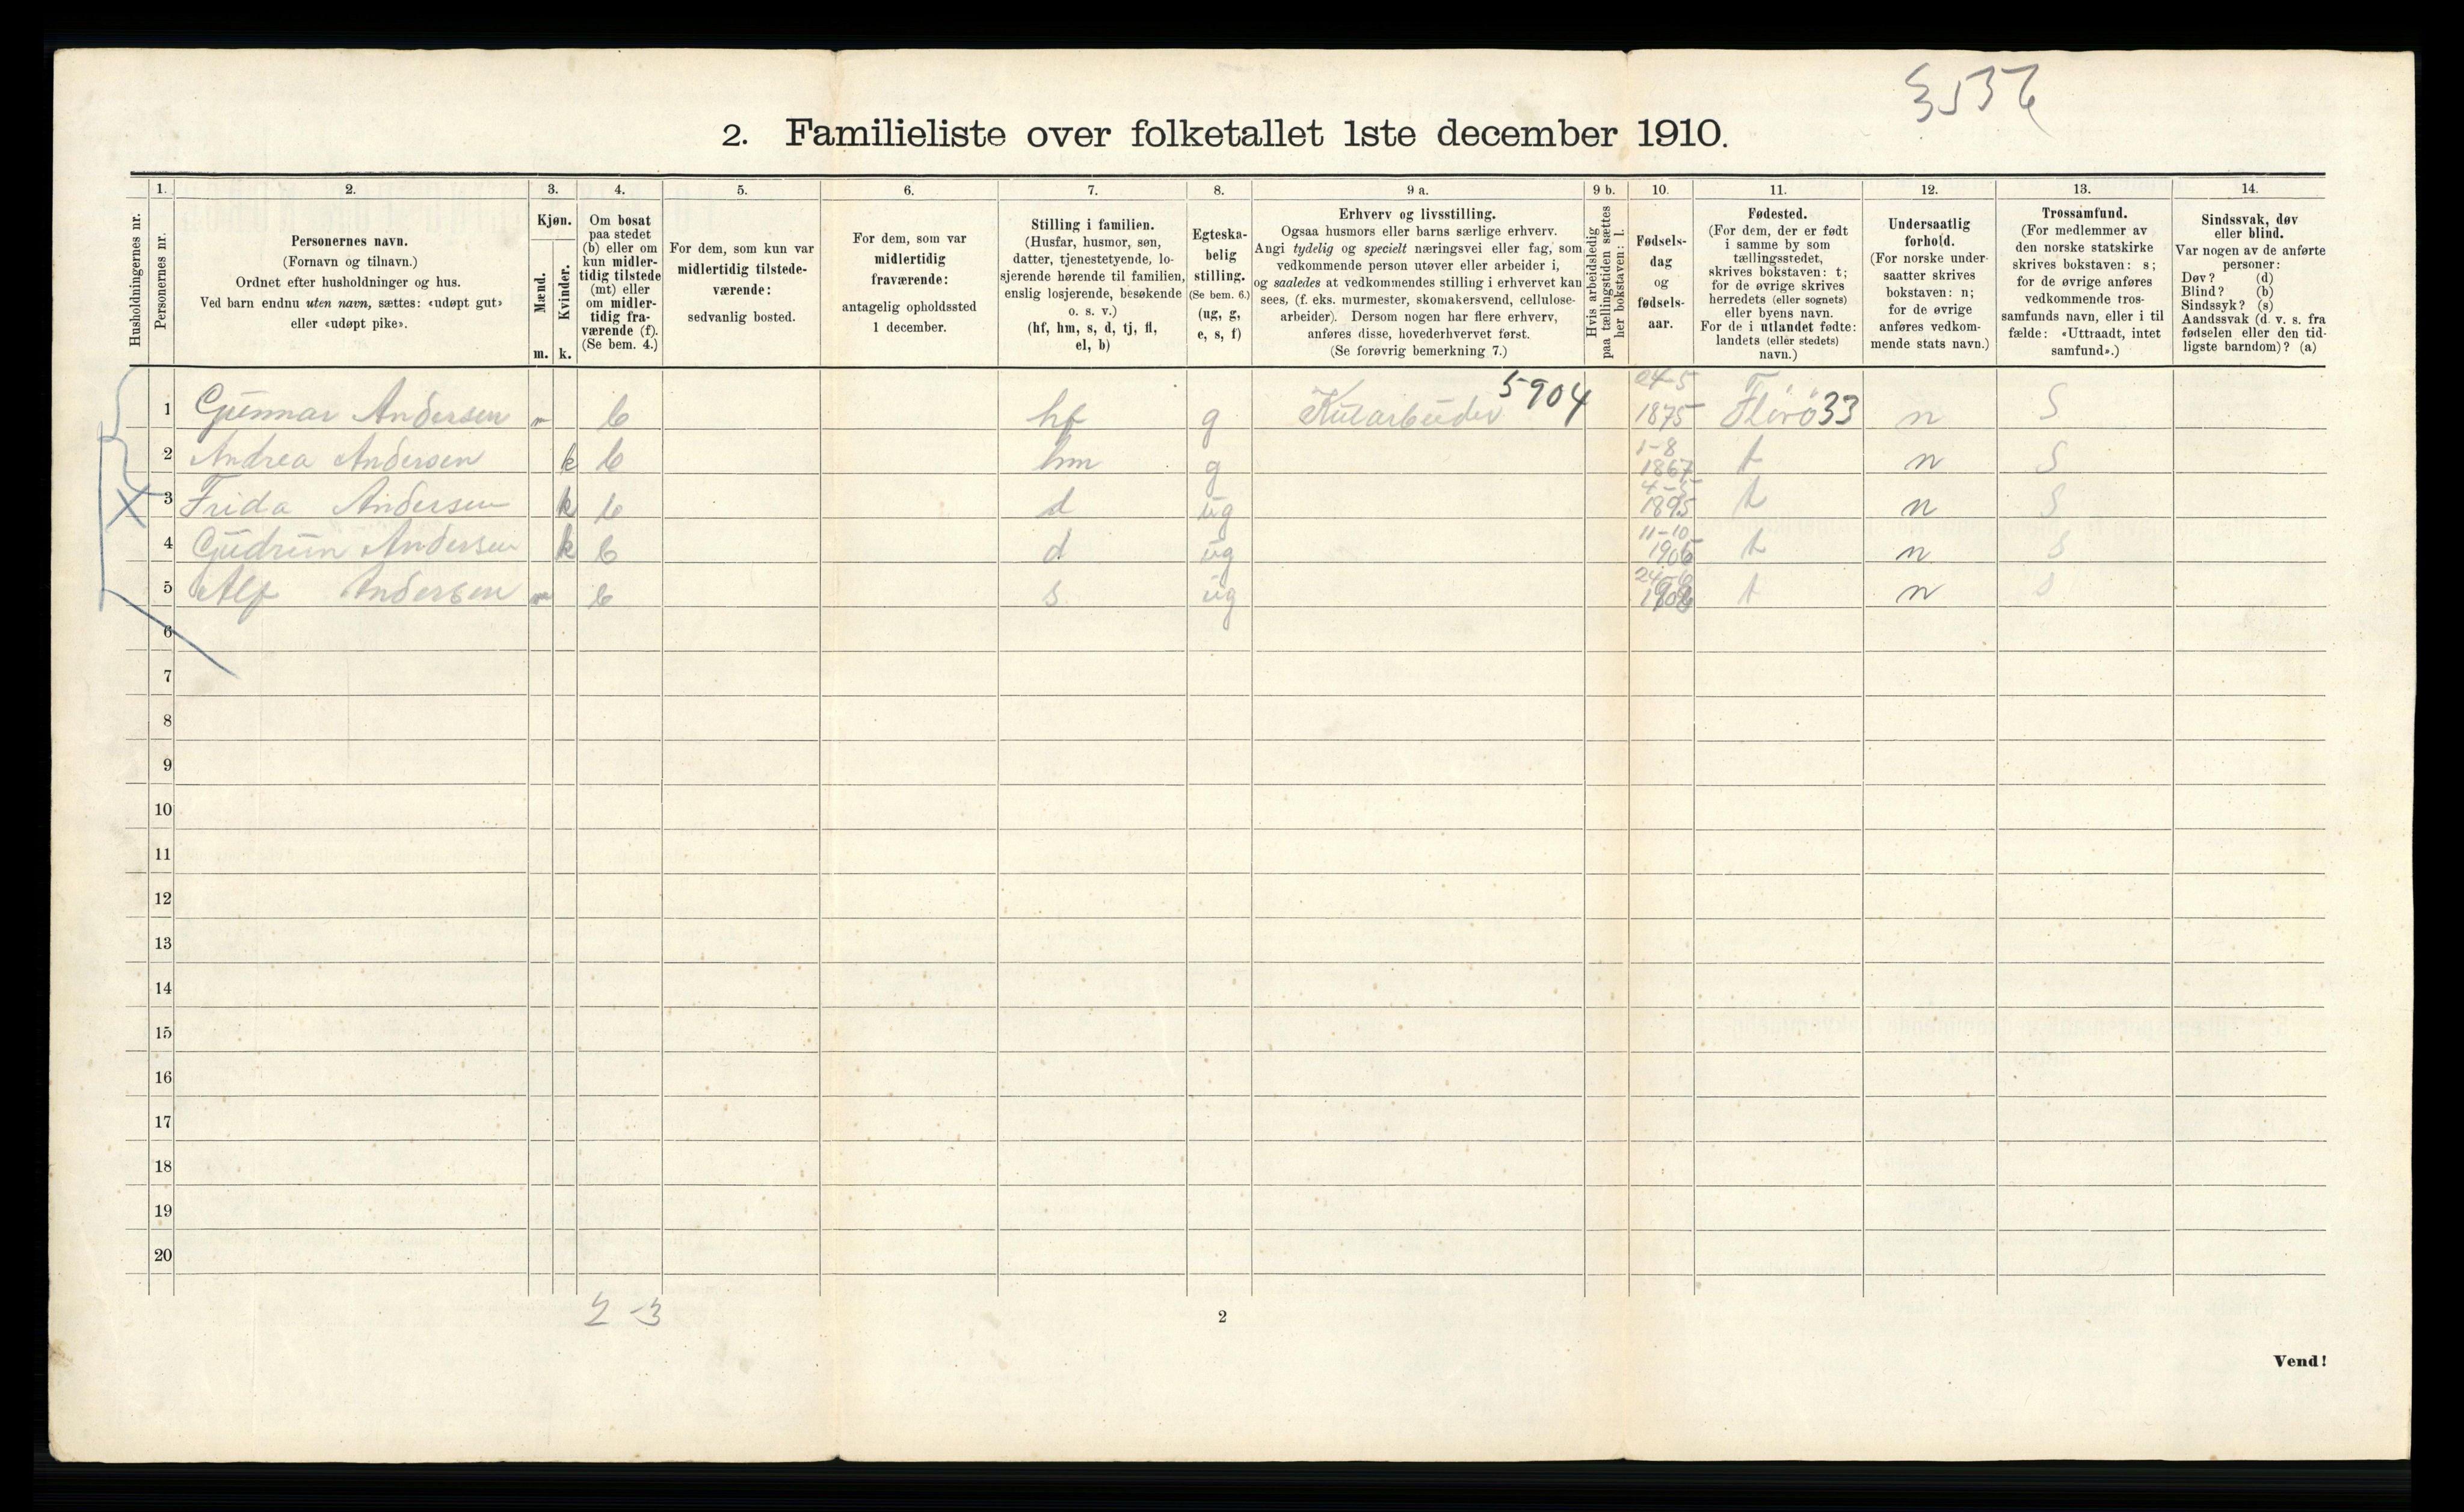 3536
2. Familieliste over folketallet 1ste december 1910.
Husholdningernes nr.
1.
Personernes nr.
2.
Personernes navn.
(Fornavn og tilnavn.)
Ordnet efter husholdninger og hus.
Ved barn endnu uten navn, sættes: «udøpt gut»
eller «udøpt pike».
3.
Kjøn.
Mænd.
Kvinder.
m. k.
4.
Om bosat
paa stedet
(b) eller om
kun midler-
tidig tilstede
(mt) eller
om midler-
tidig fra-
værende (f).
(Se bem. 4.)
5.
For dem, som kun var
midlertidig tilstede-
værende:
sedvanlig bosted.
6.
For dem, som var
midlertidig
fraværende:
antagelig opholdssted
1 december.
7.
Stilling i familien.
(Husfar, husmor, søn,
datter, tjenestetyende, lo-
sjerende hørende til familien,
enslig losjerende, besøkende
o. s. v.)
(hf, hm, s, d, tj, fl,
el, b)
8.
Egteska-
belig
stilling.
(Se bem. 6.)
(ug, g,
e, s, f)
9 a.
Erhverv og livsstilling.
Ogsaa husmors eller barns særlige erhverv.
Angi tydelig og specielt næringsvei eller fag, som
vedkommende person utøver eller arbeider i,
og saaledes at vedkommendes stilling i erhvervet kan
sees, (f. eks. murmester, skomakersvend, cellulose-
arbeider). Dersom nogen har flere erhverv,
anføres disse, hovederhvervet først.
(Se forøvrig bemerkning 7.)
9 b.
Hvis arbeidsledig
paa tællingstiden sættes
her bokstaven: l.
10.
Fødsels-
dag
og
fødsels-
aar.
11.
Fødested.
(For dem, der er født
i samme by som
tællingsstedet,
skrives bokstaven: t;
for de øvrige skrives
herredets (eller sognets)
eller byens navn.
For de i utlandet fødte:
landets (eller stedets)
navn.)
12.
Undersaatlig
forhold.
(For norske under-
saatter skrives
bokstaven: n;
for de øvrige
anføres vedkom-
mende stats navn.)
13.
Trossamfund.
(For medlemmer av
den norske statskirke
skrives bokstaven: s;
for de øvrige anføres
vedkommende tros-
samfunds navn, eller i til
fælde: «Uttraadt, intet
samfund».)
14.
Sindssvak, døv
eller blind.
Var nogen av de anførte
personer:
Døv? (d)
Blind? (b)
Sindssyk? (s)
Aandssvak (d. v. s. fra
fødselen eller den tid-
ligste barndom)? (a)
1 Gunnar Andersen m b hf g Kularbeider 5904 24-5 1875 Florö 33 n S
2 Andrea Andersen k b hm g 1-8 1867 t n S
3 Frida Andersen k b d ug 1895 t n S
4 Gudrun Andersen k b d ug 11-10 t n S
5 Alf Andersen m b s ug t n S
6
7
8
9
10
11
12
13
14
15
16
17
18
19
20
2-3
2
Vend!